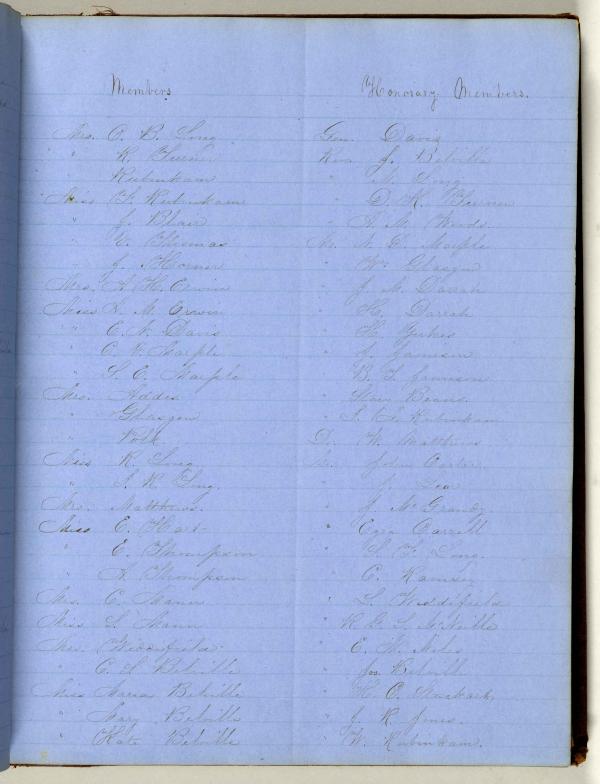 Members
Mrs. C. B. Long
" R. Turner
" Rubinkam
Miss F. Rubinkam
" J. Blair
" Thomas
" J. Horner
Mrs. A. H. Erwin
Miss A. M. Erwin
" C. N. Davis
" C. V. Marple
" S. C. Marple
Mrs. Addis
" Glasgow
" Polk
Miss R. Long
" S. K. Long.
Mrs. Matthews.
Miss E. Hart
" E. Thompson
" A. Thompson
Mrs. C. Mann
Miss S. Mann
Mrs. Widdifield
" C. S. Belville
Miss Maria Belville
" Mary Belville
" Kate Belville
Honorary Members.
Gen. Davis
Rev. J. Belville
" Long
" D. K. Turner
" A. M. Woods.
Mr. N. G. Marple
" Wm. Glasgow
" J. M. Darrah
" H. Darrah
" H. Yerkes
" J. Jamison
" B. T. Jamison
" Beans.
" S. A. Rubinkam
Dr. W. Matthews
Mr. John Carter
" J.
" J. McGrandy
" Ezra Carrell
" S. F. Long.
" C. Ramsey
" L. Widdifield
" R. G. S. McNeille
" E. H. Niles
" Jos. Belville
" H. C.
" J. R. Jones.
" W. Rubinkam.